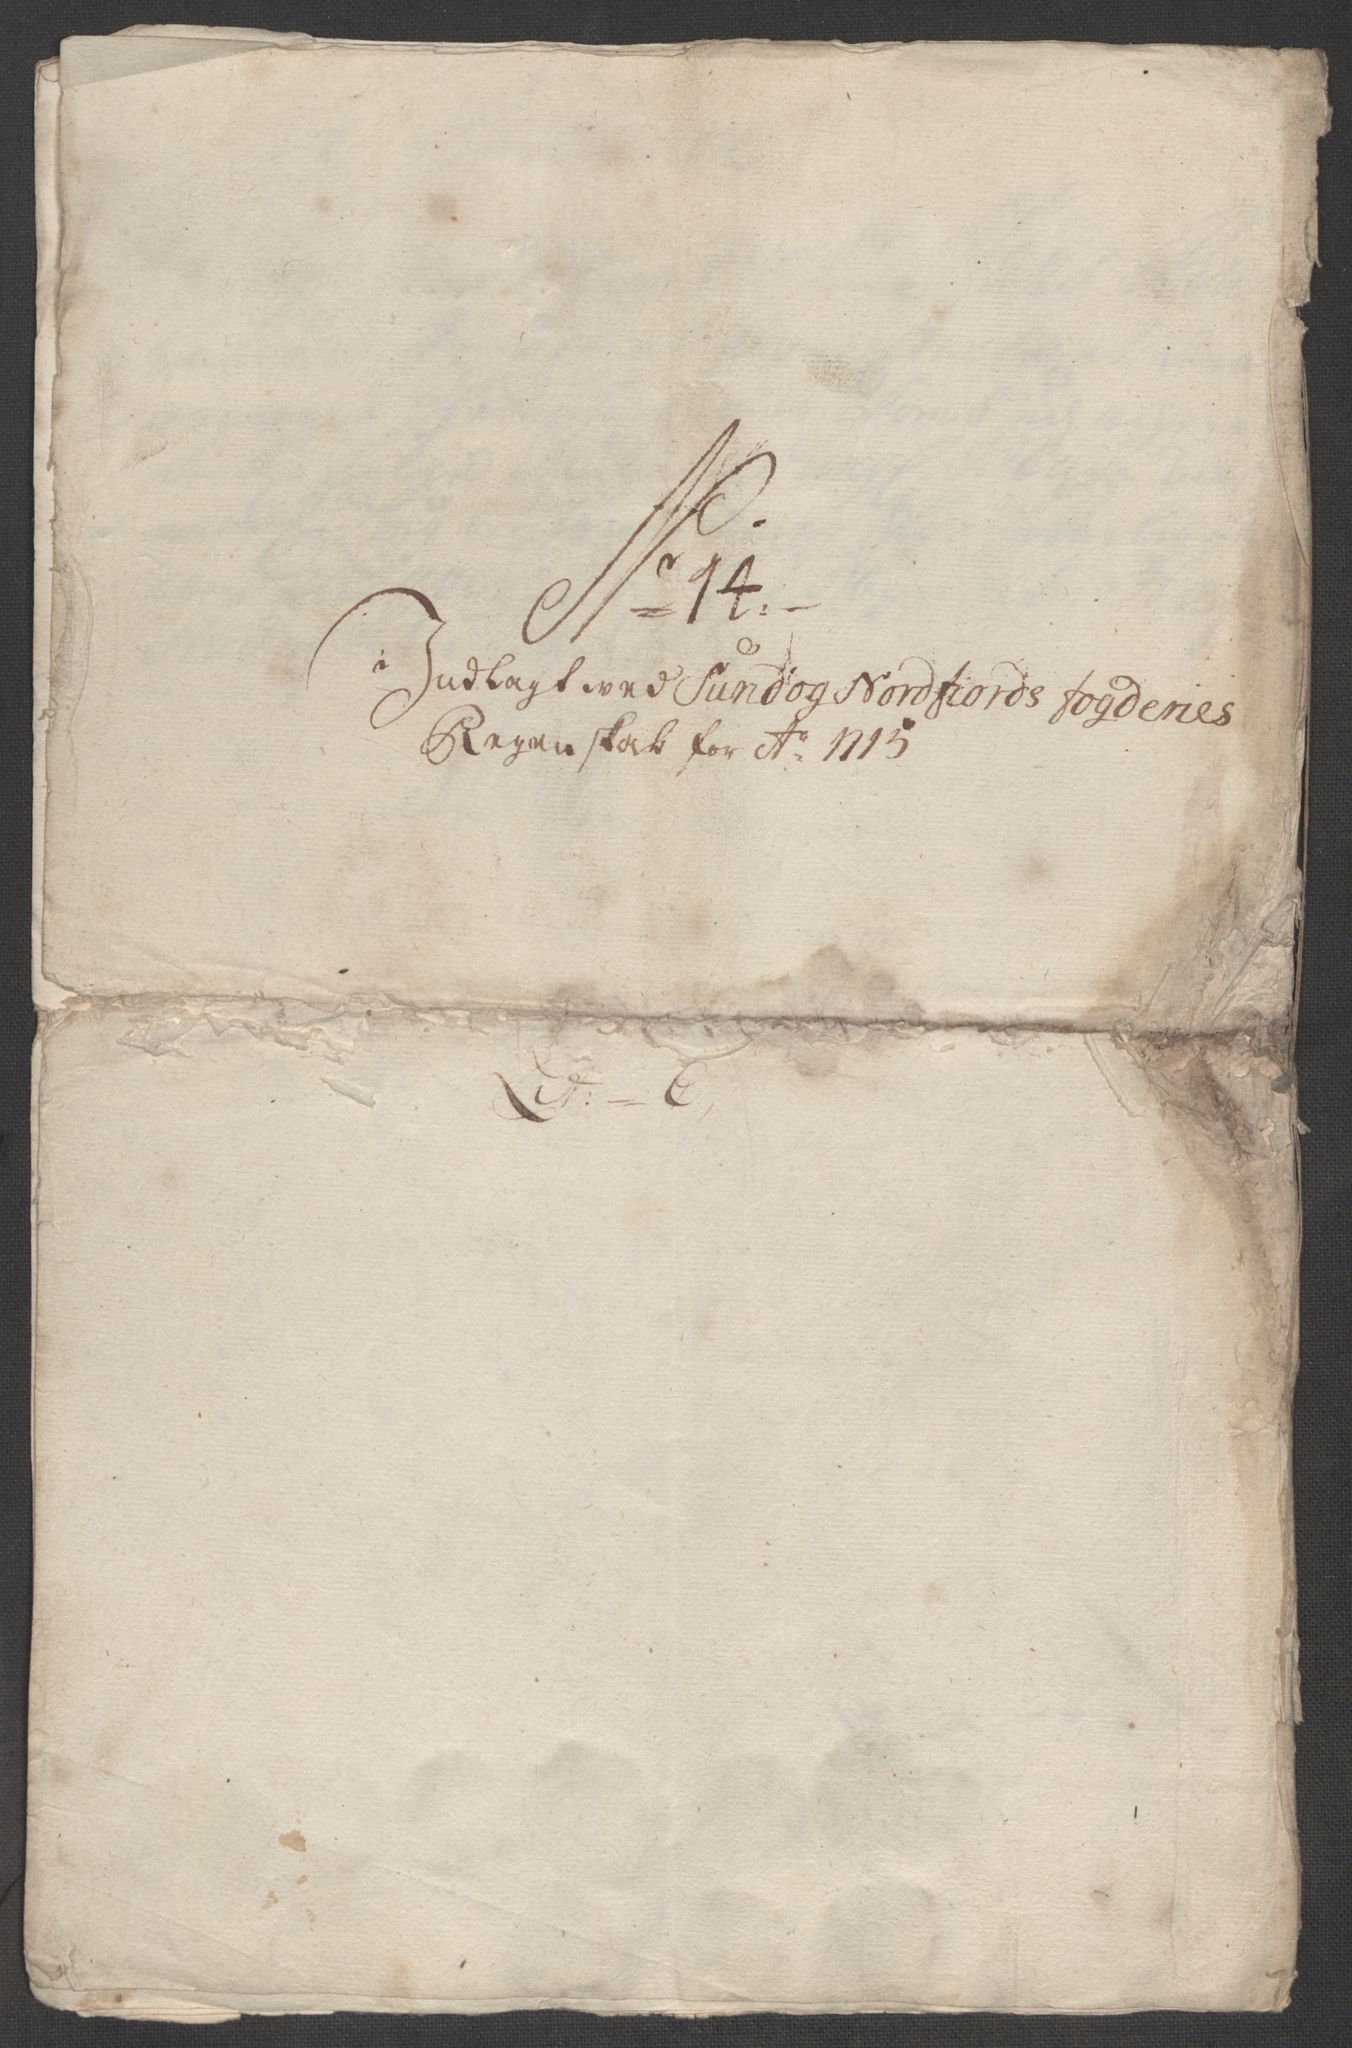 N.
No 14.
Indlagt ved Sund og Nordfiords fogderies
Regenskab for Ao 1715
Lit: C,